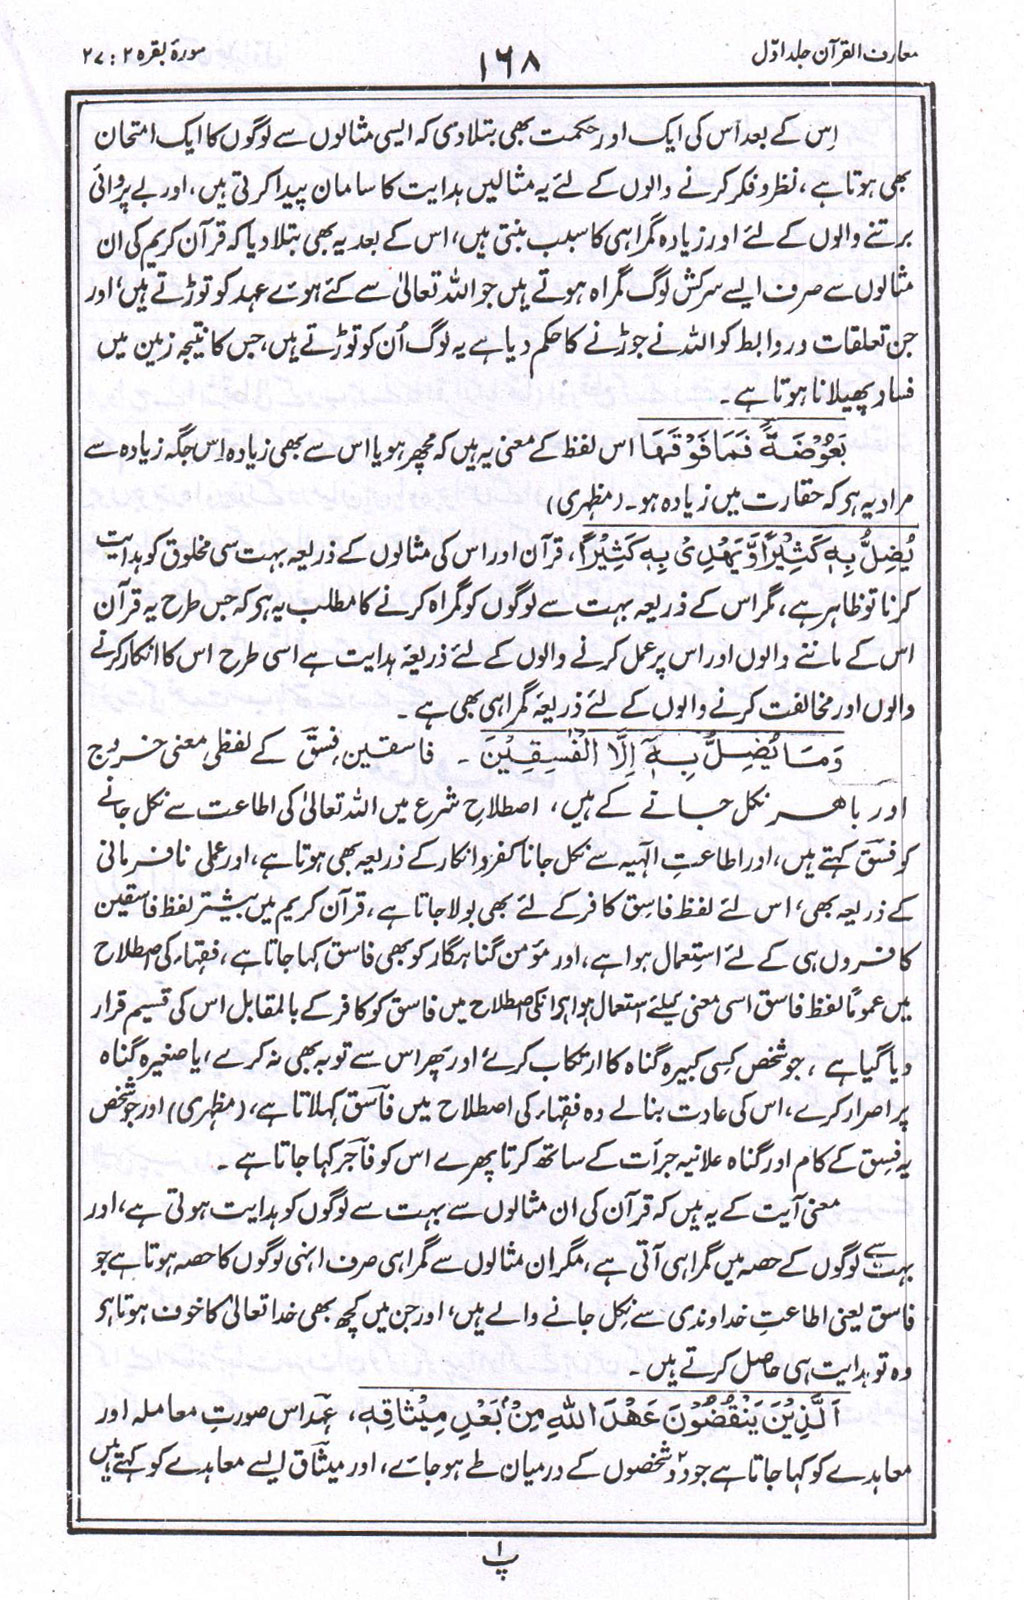 معارف القرآن جلد اوّل
۱۶۸
سورۂ بقرہ ۲ : ۲۷
اِس کے بعد اُس کی ایک اور حکمت بھی بتلادی کہ ایسی مثالوں سے لوگوں کا ایک امتحان
بھی ہوتا ہے ، نظر و فکر کرنے والوں کے لئے یہ مثالیں ہدایت کا سامان پیدا کرتی ہیں ، اور بے پروائی
برتنے والوں کے لئے اور زیادہ گمراہی کا سبب بنتی ہیں ، اس کے بعد یہ بھی بتلادیا کہ قرآن کریم کی ان
مثالوں سے صرف ایسے سرکش لوگ گمراہ ہوتے ہیں جو اللہ تعالیٰ سے کئے ہوئے عہد کو توڑتے ہیں ، اور
جن تعلقات و روابط کو اللہ نے جوڑنے کا حکم دیا ہے یہ لوگ اُن کو توڑتے ہیں ، جس کا نتیجہ زمین میں
فساد پھیلانا ہوتا ہے ۔
بَعُوْضَۃً فَمَا فَوْقَہَا اس لفظ کے معنی یہ ہیں کہ مچھر ہو یا اس سے بھی زیادہ اِس جگہ زیادہ سے
مراد یہ ہو کہ حقارت میں زیادہ ہو ۔ (مظہری)
یُضِلُّ بِہٖ کَثِیْرًا وَّ یَہْدِیْ بِہٖ کَثِیْرًا ، قرآن اور اس کی مثالوں کے ذریعہ بہت سی مخلوق کو ہدایت
کرنا تو ظاہر ہے ، مگر اس کے ذریعہ بہت سے لوگوں کو گمراہ کرنے کا مطلب یہ ہو کہ جس طرح یہ قرآن
اس کے ماننے والوں اور اس پر عمل کرنے والوں کے لئے ذریعۂ ہدایت ہے اسی طرح اس کا انکار کرنے
والوں اور مخالفت کرنے والوں کے لئے ذریعۂ گمراہی بھی ہے ۔
وَمَا یُضِلُّ بِہٖٓ اِلَّا الْفٰسِقِیْنَ ۔ فاسقین ، فِسق کے لفظی معنی خروج
اور باہر نکل جانے کے ہیں ، اصطلاحِ شرع میں اللہ تعالیٰ کی اطاعت سے نکل جانے
کو فسق کہتے ہیں ، اور اطاعتِ الٰہیہ سے نکل جانا کفر و انکار کے ذریعہ بھی ہوتا ہے ، اور عملی نافرمانی
کے ذریعہ بھی ، اس لئے لفظ فاسِق کافر کے لئے بھی بولا جاتا ہے ، قرآن کریم میں بیشتر لفظ فاسقین
کافروں ہی کے لئے استعمال ہوا ہے ، اور مؤمن گناہگار کو بھی فاسق کہا جاتا ہے ، فقہاء کی اصطلاح
میں عموماً لفظ فاسق اسی معنی کیلئے استعمال ہوا ہو انکی اصطلاح میں فاسق کو کافر کے بالمقابل اس کی قسیم قرار
دیا گیا ہے ، جو شخص کِسی کبیرہ گناہ کا ارتکاب کرے اور پھر اس سے توبہ بھی نہ کرے ، یا صغیرہ گناہ
پر اصرار کرے ، اس کی عادت بنالے وہ فقہاء کی اصطلاح میں فاسق کہلاتا ہے ، (مظہری) اور جو شخص
یہ فِسق کے کام اور گناہ علانیہ جرأت کے ساتھ کرتا پھرے اس کو فاجر کہا جاتا ہے ۔
معنی آیت کے یہ ہیں کہ قرآن کی ان مثالوں سے بہت سے لوگوں کو ہدایت ہوتی ہے ، اور
بہت سے لوگوں کے حصہ میں گمراہی آتی ہے ، مگر ان مثالوں سے گمراہی صرف انہی لوگوں کا حصہ ہوتا ہے جو
فاسق یعنی اطاعتِ خداوندی سے نکل جانے والے ہیں ، اور جن میں کچھ بھی خدا تعالیٰ کا خوف ہوتا ہو
وہ تو ہدایت ہی حاصل کرتے ہیں ۔
اَلَّذِیْنَ یَنْقُضُوْنَ عَہْدَ اللہِ مِنْۢ بَعْدِ مِیْثَاقِہٖ ، عہد اس صورتِ معاملہ اور
معاہدے کو کہا جاتا ہے جو دو شخصوں کے درمیان طے ہو جائے ، اور میثاق ایسے معاہدے کو کہتے ہیں
پ ۱